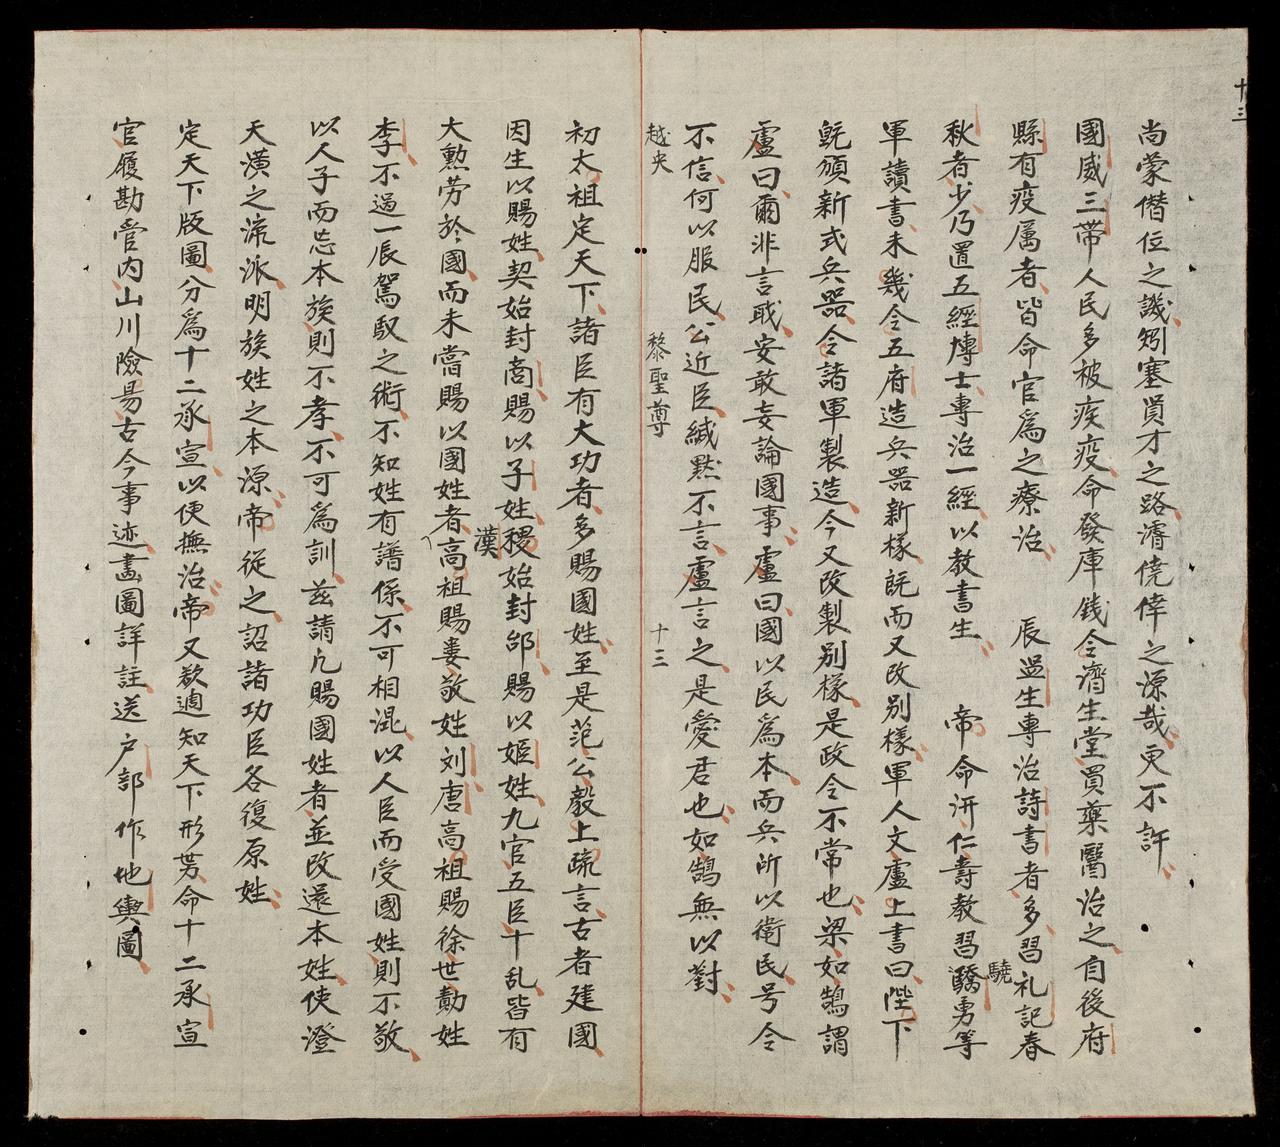 十三
尚蒙僭位之譏矧塞賢才之路濬僥倖之源哉更不許
國威三帶人民多被疾疫命發庫錢令濟生堂買藥醫治之自後府
縣有疫厲者皆命官爲之療治 辰監生專治詩書者多習礼記春
秋者少乃置五經博士專治一經以教書生 帝命汧仁壽教習驕勇等
驍
軍讀書未幾令五府造兵器新樣既而又改別樣軍人文盧上書曰陛下
既頒新式兵器令諸軍製造今又改製別樣是政令不常也梁如鵠謂
盧曰爾非言職安敢妄論國事盧曰國以民爲本而兵所以衛民号令
不信何以服民公近臣緘默不言盧言之是愛君也如鵠無以對
越史 黎聖尊 十三
初太祖定天下諸臣有大功者多賜國姓至是范公毅上疏言古者建國
因生以賜姓契始封商賜以子姓稷始封邰賜以姬姓九官五臣十乱皆有
漢
大勲劳於國而未嘗賜以國姓者高祖賜婁敬姓刘唐高祖賜徐世勣姓
李不過一辰駕馭之術不知姓有譜係不可相混以人臣而受國姓則不敬
以人子而忘本族則不孝不可爲訓兹請凡賜國姓者並改還本姓使澄
天潢之流派明族姓之本源帝從之詔諸功臣各復原姓
定天下版圖分爲十二承宣以便撫治帝又欲週知天下形势命十二承宣
官履勘管內山川險易古今事迹畫圖詳註送户部作地輿圖